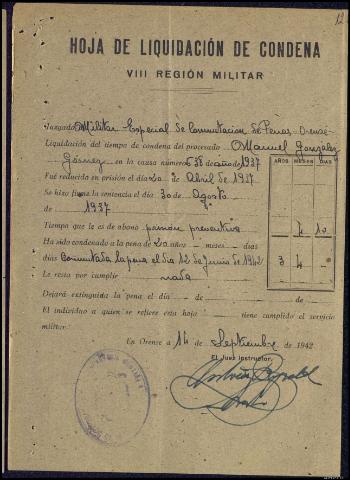 12
HOJA DE LIQUIDACIÓN DE CONDENA
VIII REGIÓN MILITAR
Juzgado Militar Especial de Conmutación de Penas Orense
Liquidación del tiempo de condena del procesado Manuel Gonzalez
Gómez en la causa número 538 de año de 1937
AÑOS MESES DIAS
Fué reducido en prisión el día 20 de Abril de 1937
Se hizo firme la sentencia el día 30 de Agosto
de 1937
Tiempo que le es de abono prisión preventiva 4 10
Ha sido condenado a la pena de 20 años - meses - días
días Conmutada la pena el día 12 de Junio de 1942 3 4
Le resta por cumplir nada
Dejará extinguida la pena el día - de - de -
El individuo a quien se refiere esta hoja - tiene cumplido el servicio
militar.
En Orense a 14 de Septiembre de 1942
El Juez Instructor,